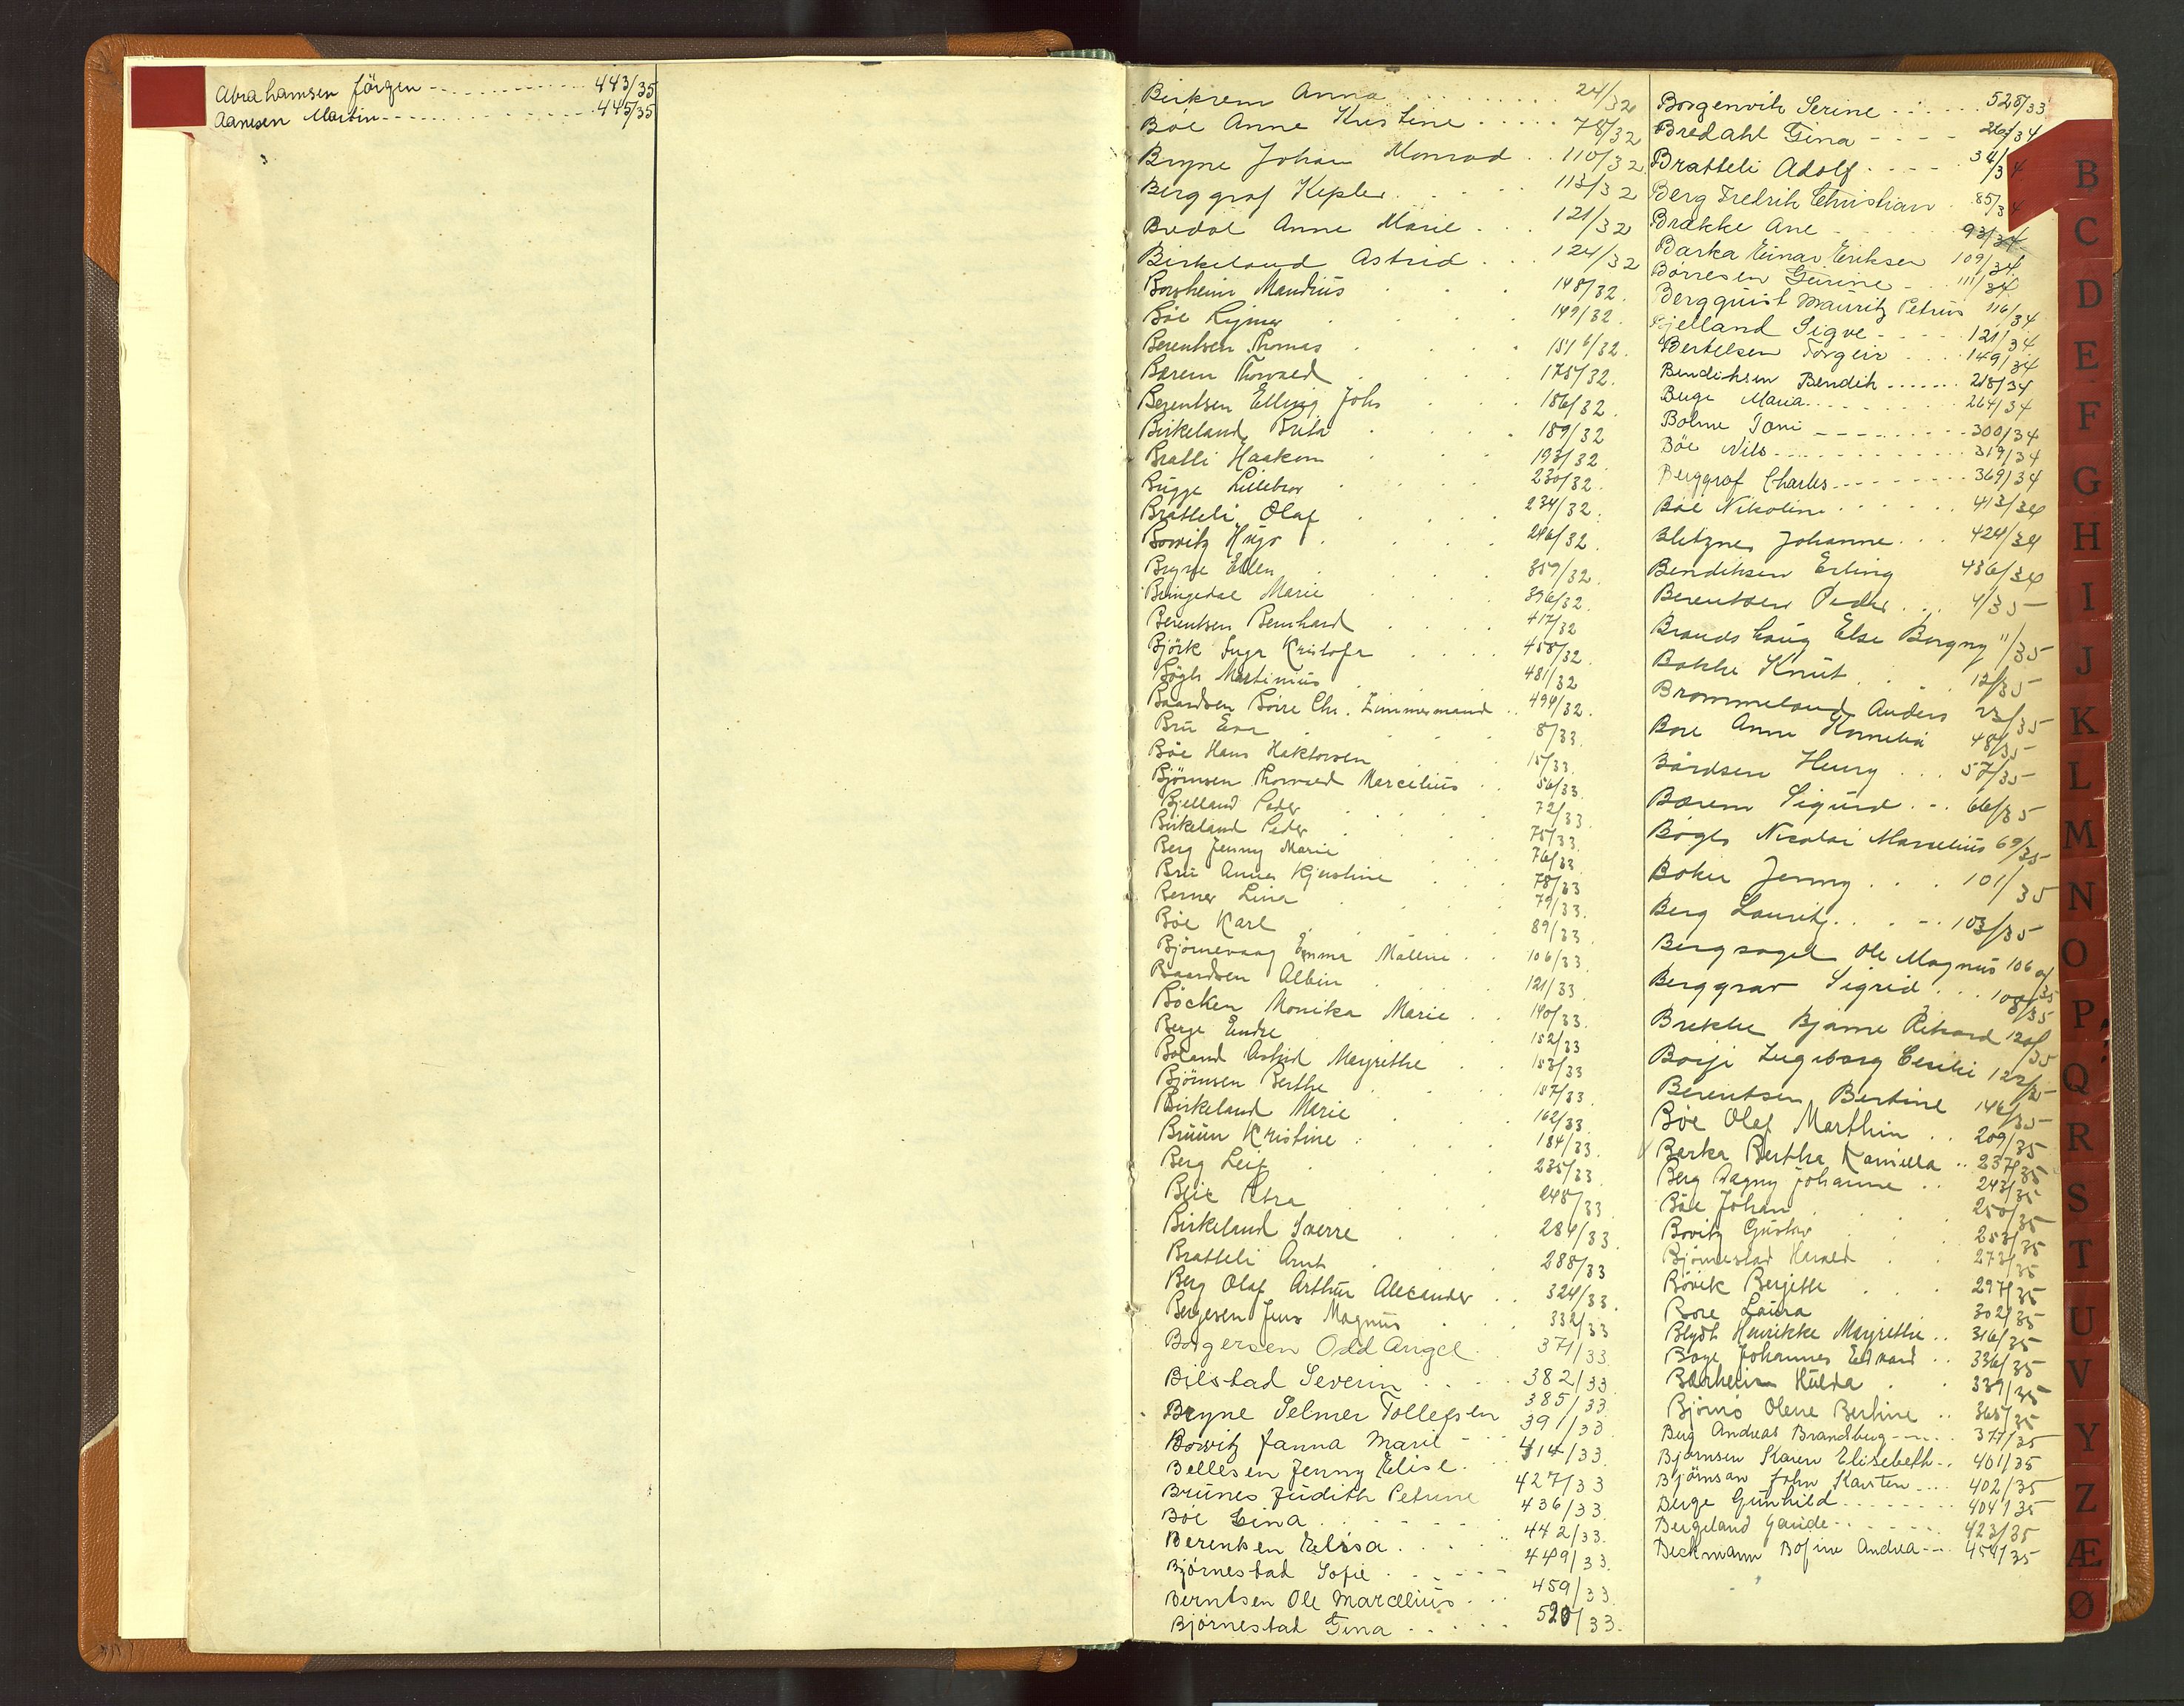 Abrahamsen Jörgen 443/35
Aanesen Martin 445/35
Birkrem Anna 24/32
Böe Anne Kristine 78/32
Bryne Johan Monrad 110/32
Berggraf Kepler 113/32
Bredal Anne Marie 121/32
Birkeland Astrid 124/32
Borsheim Mandius 148/32
Böe Rymer 149/32
Berentsen Thomas /32
Bærem Thorvald 175/32
Berentsen Elling Johs 186/32
Birkeland Brita 189/32
Bratli Haakon 193/32
Bugge Lillebror 230/32
Bratteli Olaf 234/32
Bowitz Hugo 246/32
Bryne Ellen 359/32
Bringedal Marie 396/32
Berentsen Bernhard 417/32
Björk Inga Kristofa 458/32
Bögh Martinius 481/32
Baardsen Börre Chr. Zimmermand 499/32
Bru Eva 8/33
Böe Hans Haktorsen 15/33
Björnsen Thorvald Marcelius 56/33
Bjelland Peder 72/33
Birkeland Peder 75/33
Berg Jenny Marie 76/33
Bru Anna Kjerstine 78/33
Berner Lina 79/33
Böe Karl 89/33
Björnevaag Emma Malene 106/33
Baardsen Albin 121/33
Böcken Monika Marie 140/33
Berge Endre 152/33
Böland Astrid Margrethe 153/33
Björnsen Berthe 157/33
Birkeland Marie 162/33
Bruun Kristine 184/33
Berg Leif 235/33
Blix Petra 248/33
Birkeland Sverre 284/33
Bratteli Arnt 288/33
Berg Olaf Arthur Alexander 324/33
Bergesen Jens Magnus 332/33
Börgersen Odd Angel 371/33
Bilstad Severin 382/33
Bryne Selmer Tollefsen 385/33
Bowitz Janna Marie 391/33
Bellesen Jenny Elise 414/33
Brunes Judith Petrine 427/33
Böe Gina 436/33
Berentsen Elisa 442/33
Bjørnestad Sofie 449/33
Berntsen Ole Marcelius 459/33
Bjørnestad Gina 520/33
Borgenvik Serine 528/33
Bredahl Gina 26/34
Bratteli Adolf 34/34
Berg Fredrik Christian 85/34
Brække Ane 93/34
Barka Einar Eriksen 109/34
Børresen Gurine 111/34
Bergquist Mauritz Petrus 116/34
Bjelland Sigve 121/34
Bertelsen Torgeir 149/34
Bendiksen Bendik 218/34
Berge Maria 264/34
Bohne Toni 300/34
Böe Nils 319/34
Berggraf Charles 369/34
Böe Nikoline 413/34
Blitznes Johanne 424/34
Bendiksen Erling 436/34
Berentsen Peder 4/35
Brandshaug Else Borgny 11/35
Bakke Knut 12/35
Brommeland Anders 23/35
Bore Anne Kornelia 48/35
Bårdsen Henry 57/35
Bærem Sigurd 66/35
Bøgh Nicolai Marselius 69/35
Boken Jenny 101/35
Berg Lauritz 103/35
Bergsagel Ole Magnus 106/35
Berggrav Sigrid 108/35
Brekke Bjarne Rikard 120/35
Borje Ingeborg Cecilie 122/35
Berentsen Bertine 146/35
Böe Olaf Marthin 209/35
Berka Bertha Kamilla 237/35
Berg Dagny Johanne 243/35
Böe Johan 250/35
Bovitz Gustav 253/35
Björnestad Harald 273/35
Rövik Bergitte 297/35
Bore Laura 302/35
Blydt Henrikke Margrethe 316/35
Boye Johannes Edvard 336/35
Bærheim Hulda 339/35
Björnö Olene Bertine 365/35
Berg Andreas Brandberg 377/35
Bjørnsen Karen Elisebeth 401/35
Björnson John Karsten 402/35
Berge Gunhild 404/35
Bergeland Gaude 423/35
Beckmann Bofine Andrea 454/35
B
C
D
E
F
G
H
I
J
K
L
M
N
O
P
Q
R
S
T
U
V
Y
Z
Æ
Ø